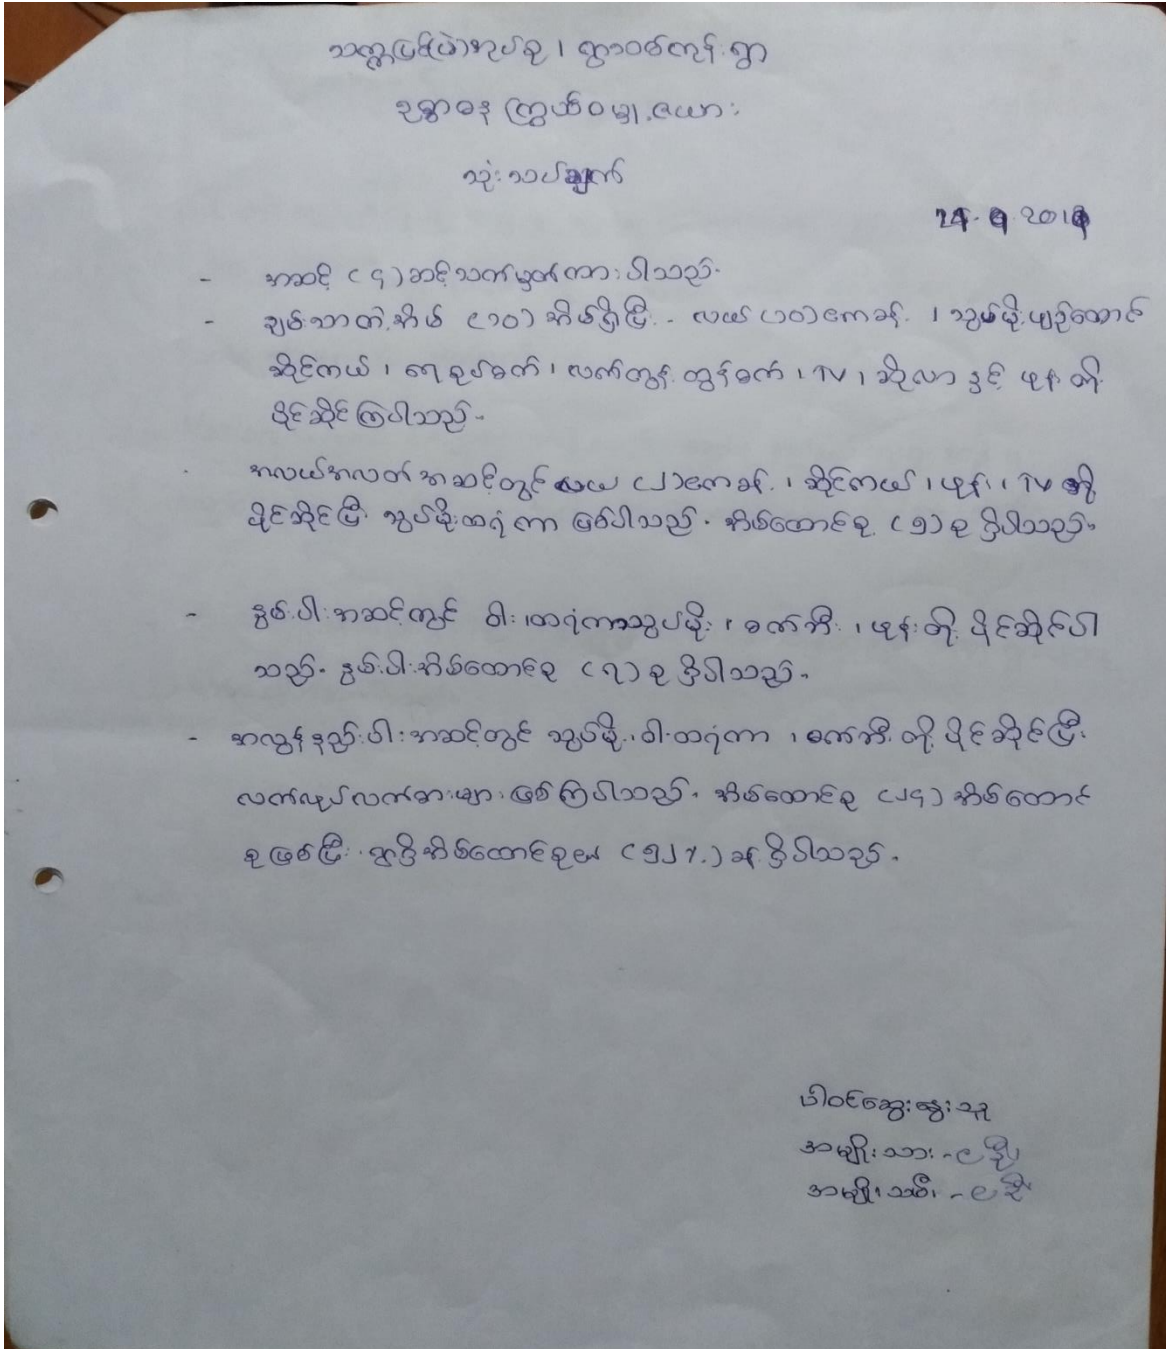 သက္ကပြင်ကြဲအုပ်စု၊ ရွာသစ်ကုန်းရွာ
ဥစ္စာဓန ကြွယ်ဝမှု ဇယား
သုံးသပ်ချက်
အဆင့် (၄) ဆင့် သတ်မှတ်ထားပါသည်။
- ချမ်းသာတဲ့ အိမ် (၁၀) အိမ်ရှိပြီး - လယ် (၁၀) ဧကခန့် ၊ သွပ်မိုး ပျဉ်ထောင်
ဆိုင်ကယ် ၊ ရေစုပ်စက် ၊ လက်တွန်းထွန်စက် ၊ TV ၊ ဆိုလာ နှင့် ဖုန်း တို့
ပိုင်ဆိုင်ကြပါသည်။
- အလယ်အလတ် အဆင့်တွင် လယ် (၂) ဧကခန့် ၊ ဆိုင်ကယ် ၊ ဖုန်း ၊ TV တို့
ပိုင်ဆိုင်ပြီး သွပ်မိုးထရံကာ ဖြစ်ပါသည်။ အိမ်ထောင်စု (၅) စု ရှိပါသည်။
- နွမ်းပါး အဆင့်တွင် ဝါးထရံကာသွပ်မိုး ၊ စက်ဘီး ၊ ဖုန်း တို့ ပိုင်ဆိုင်ပါ
သည်။ နွမ်းပါးအိမ်ထောင်စု (၇) စု ရှိပါသည်။
- အလွန်နွမ်းပါး အဆင့်တွင် သွပ်မိုး ၊ ဝါးထရံကာ ၊ စက်ဘီး တို့ ပိုင်ဆိုင်ပြီး
လက်လုပ်လက်စားများ ဖြစ်ကြပါသည်။ အိမ်ထောင်စု (၂၄) အိမ်ထောင်
စု ဖြစ်ပြီး ရွာရှိအိမ်ထောင်စု၏ (၅၂%) ခန့် ရှိပါသည်။
ပါဝင်ဆွေးနွေးသူ
အမျိုးသား - ၉ ဦး
အမျိုးသမီး - ၉ ဦး